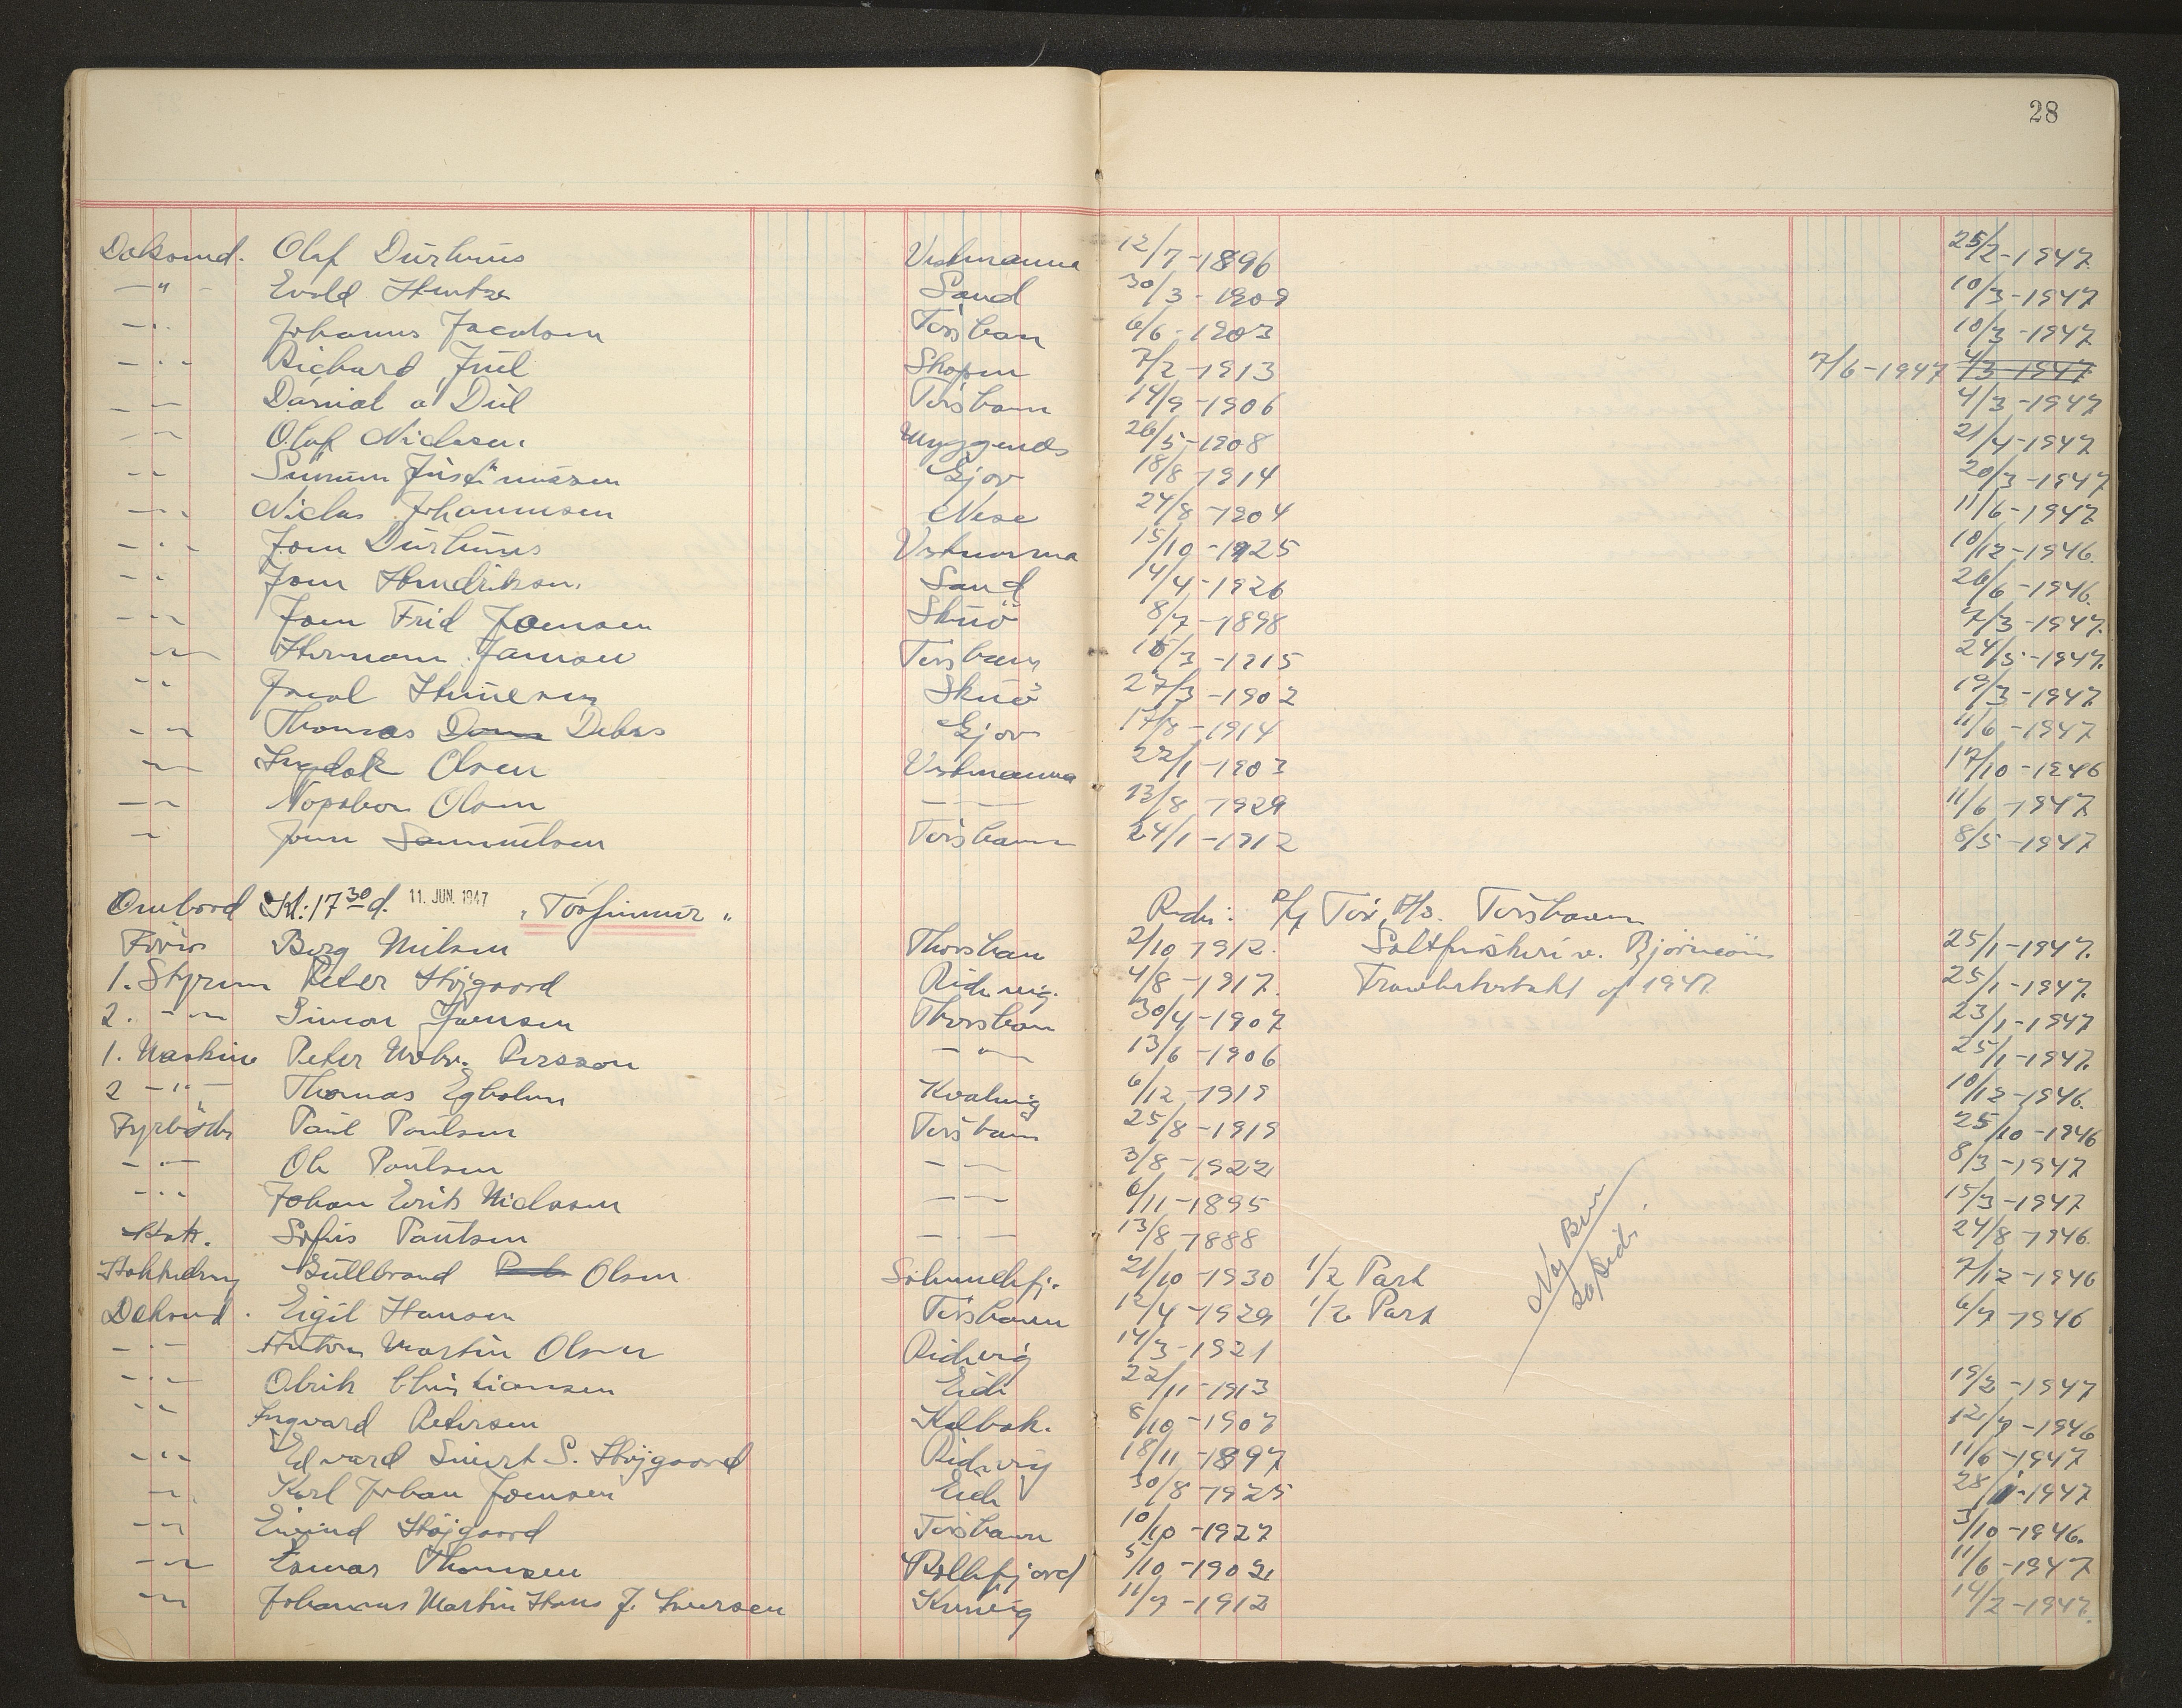 28
Daksmd. Olaf Dúrhuus Vestmanna 12/7-1896 25/2-1947
—"— Evald Hentze Sand 30/3-1909 10/3-1947
— Johannes Jacobsen Torshavn 6/6-1903 10/3-1947
— Richard Juul Skopun 7/2-1913 7/6-1947 4/3-1947
— Dánial á Dúl Torshavn 14/9-1906 4/3-1947
— Olaf Niclasen Myggenæs 26/5-1908 21/4-1947
— Justinussen Gjov 18/8-1914 20/3-1947
— Niclas Johannesen Nese 24/8-1904 11/6-1947
— Joen Dúrhuus Vestmanna 15/10-1925 10/12-1946.
— Joen Hendriksen Sand 14/4-1926 26/6-1946.
— Joen Frid Joensen Skuö 8/7-1898 7/3-1947.
— Hermann Jansen Torshavn 15/3-1915 24/5-1947.
— Skuö 27/3-1902 19/3-1947
— Thomas Debes Gjov 17/8-1914 11/6-1947
— Olsen Vestmanna 22/1-1903 17/10-1946
— Olsen — 13/8-1929 11/6-1947
— Joen Samuelsen Torshavn 24/1-1912 8/5-1947
Ombord Kl: 17 30 d. 11. JUN. 1947 "Torfinnur" Rederi: P/f Tor, A/S. Torshavn
Förer Berg Nielsen Thorshavn 2/10-1912. Saltfiskeri v. Björneöen 25/1-1947.
1. Styrm Peter Højgaard Ridevig. 4/8-1917. Trawlertakst af 1947. 25/1-1947.
2. — Simon Joensen Thorshavn 30/4-1907 23/1-1947
1. Maskine Peter Persson —"— 13/6-1906 25/1-1947.
2 —"— Thomas Egholm Kvalvig 6/12-1919 10/12-1946.
Fyrböder Paul Poulsen Torshavn 25/8-1919 25/10-1946
— Ole Poulsen — 3/8-1922 8/3-1947
— Johan Erik Niclasen — 6/11-1895 15/3-1947
Kok. Sofus Poulsen — 13/8-1888 24/8-1946.
Kokkedreng Gullbrand Olsen 21/10-1930 1/2 Part 7/12-1946
Daksmd. Eigil Hansen Torshavn 12/4-1929 1/2 Part 6/7-1946
— Anton Martin Olsen Ridevig 14/3-1921
— Olrik Christiansen Eide 22/11-1913 19/2-1947
— Ingvard Petersen Kolbak. 8/10-1907 12/7-1946
— Edvard Sivert S. Højgaard Ridevig 18/11-1897 11/6-1947
— Karl Johan Joensen Eide 30/8-1925 28/1-1947
— Eivind Højgaard Torshavn 10/10-1927 3/10-1946.
— Thomsen Kollefjord 5/10-1902 11/6-1947
— Johannes Martin Hans J. Iversen Kunvig 11/7-1912 14/2-1947.